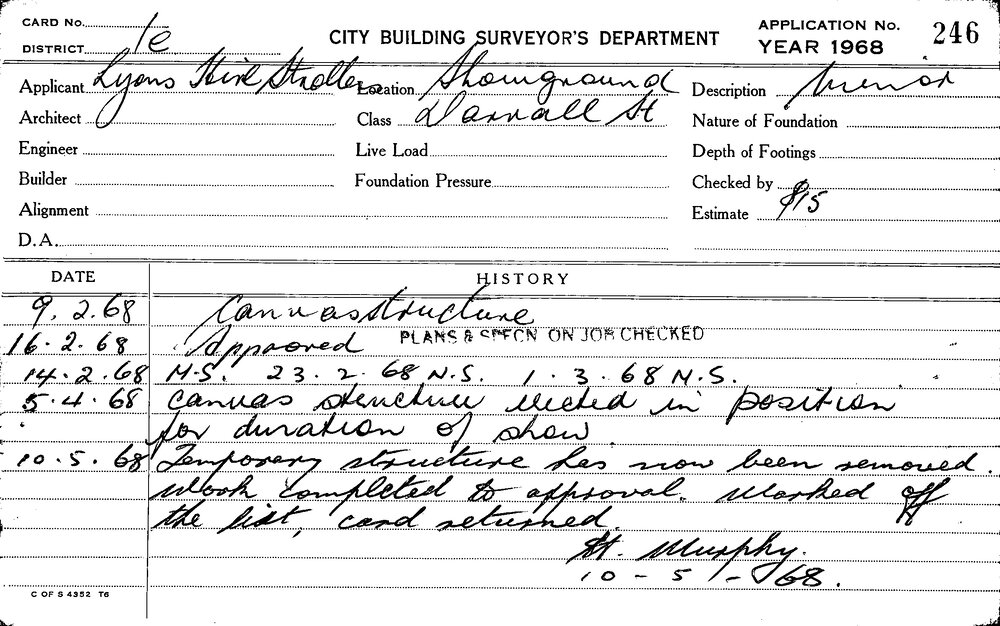 CARD No.
DISTRICT 1e
CITY BUILDING SURVEYOR'S DEPARTMENT
APPLICATION No. 246
YEAR 1968
Applicant Lyons Hire
Location Showground
Description Minor
Architect
Class Darvall St
Nature of Foundation
Engineer
Live Load
Depth of Footings
Builder
Foundation Pressure
Checked by
Alignment
Estimate $15
D.A.
DATE HISTORY
9. 2.68 Canvas structure
16.2.68 Approved PLANS & SPECN ON JOB CHECKED
14.2.68 N.S. 23.2.68 N.S. 1.3.68 N.S.
5.4.68 Canvas structure erected in position
for duration of show
10.5.68 Temporary structure has now been removed.
Work completed to approval. Marked off
the list, card returned.
Murphy.
10-5-68.
C OF S 4352 T6